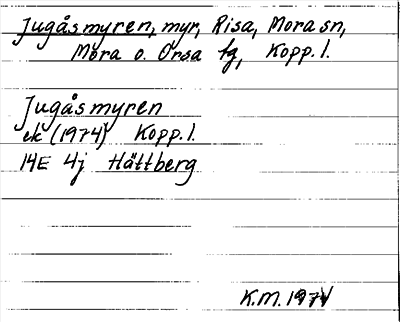 Jugåsmyren, myr, Risa, Mora sn,
Mora o. Orsa tg, Kopp. l.
Jugåsmyren
ek (1974) Kopp. l.
14E 4j Hättberg
K.M. 1974